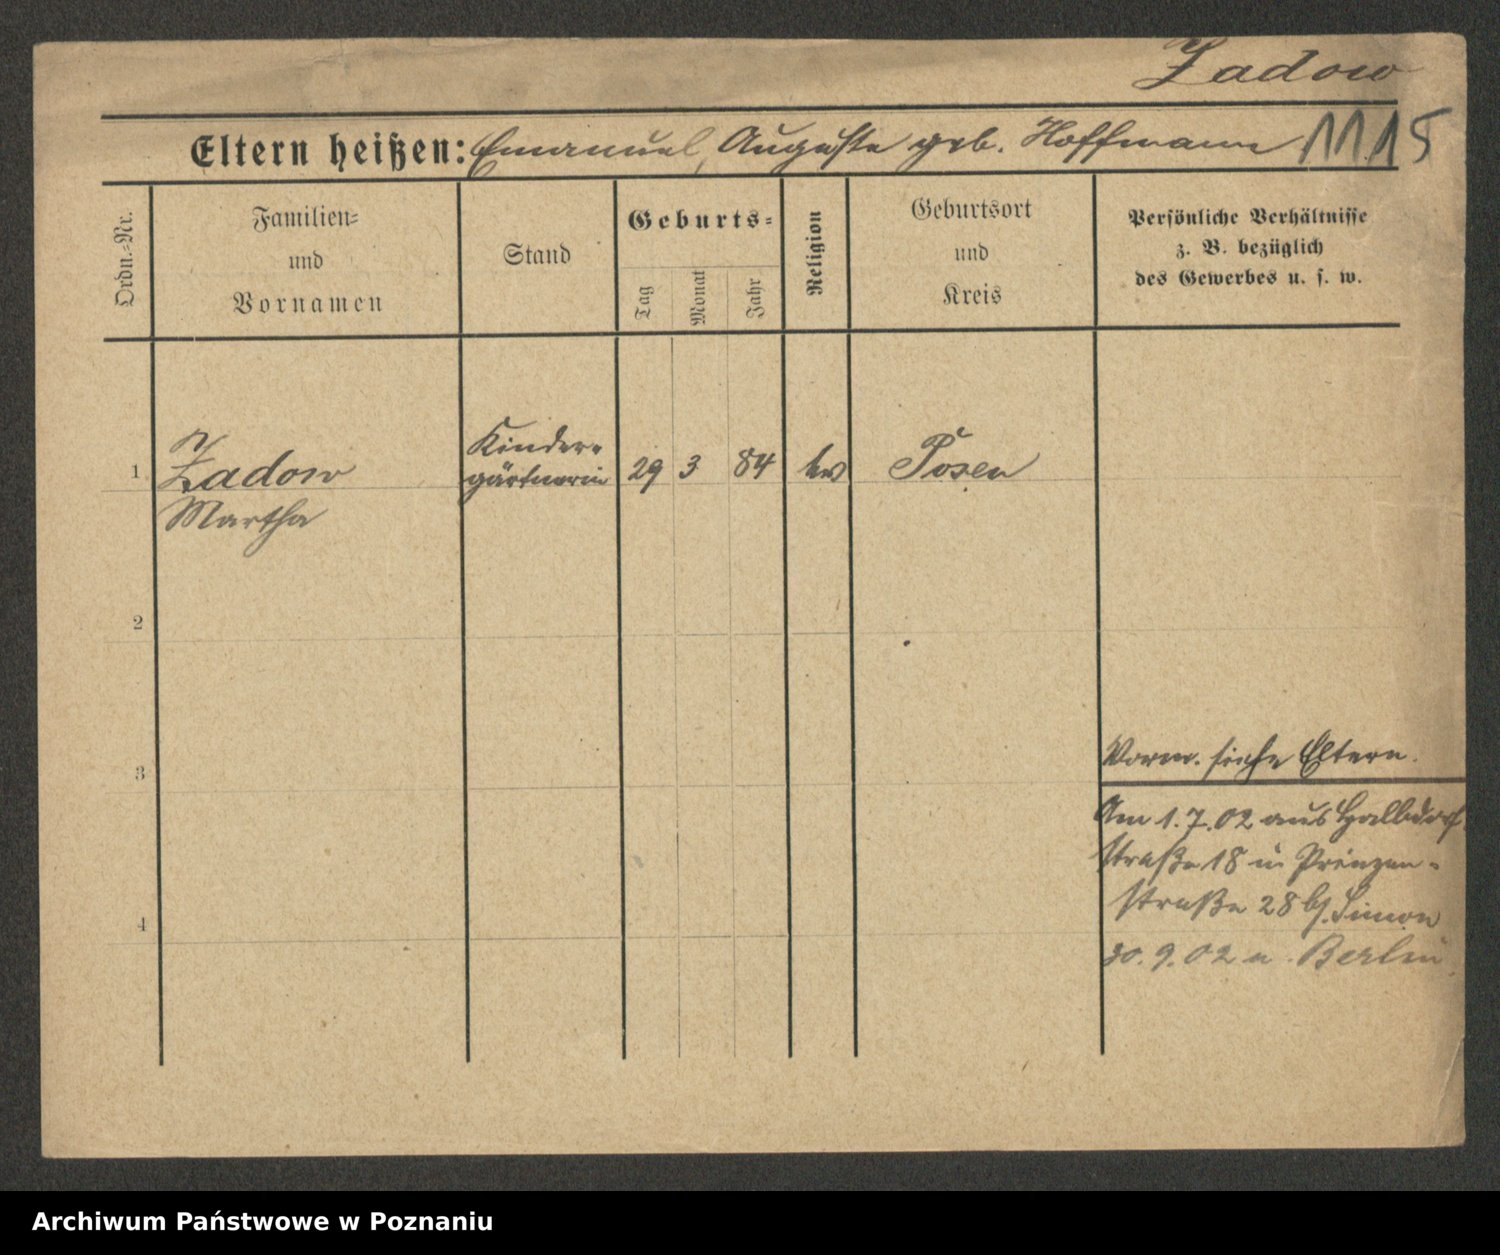 Zadow
Eltern heißen: Emanuel, Auguste geb. Hoffmann 1115
Ordn.-Nr.
Familien-
und
Vornamen
Stand
Geburts-
Tag
Monat
Jahr
Religion
Geburtsort
und
Kreis
Persönliche Verhältnisse
z. B. bezüglich
des Gewerbes u. s. w.
1
Zadow
Martha
Kinder-
gärtnerin
29 3 84
Posen
2
3
4
Vorm. siehe Eltern.
Am 1.7.02 aus Halbdorf
straße 18 in Prinzen-
straße 28 bei Simon
30.9.02 n. Berlin
Archiwum Państwowe w Poznaniu